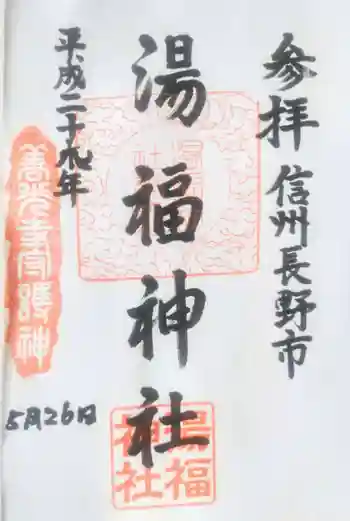 参拝 信州長野市
湯福神社
平成二十九年
5月26日
善光寺守護神
湯福神社